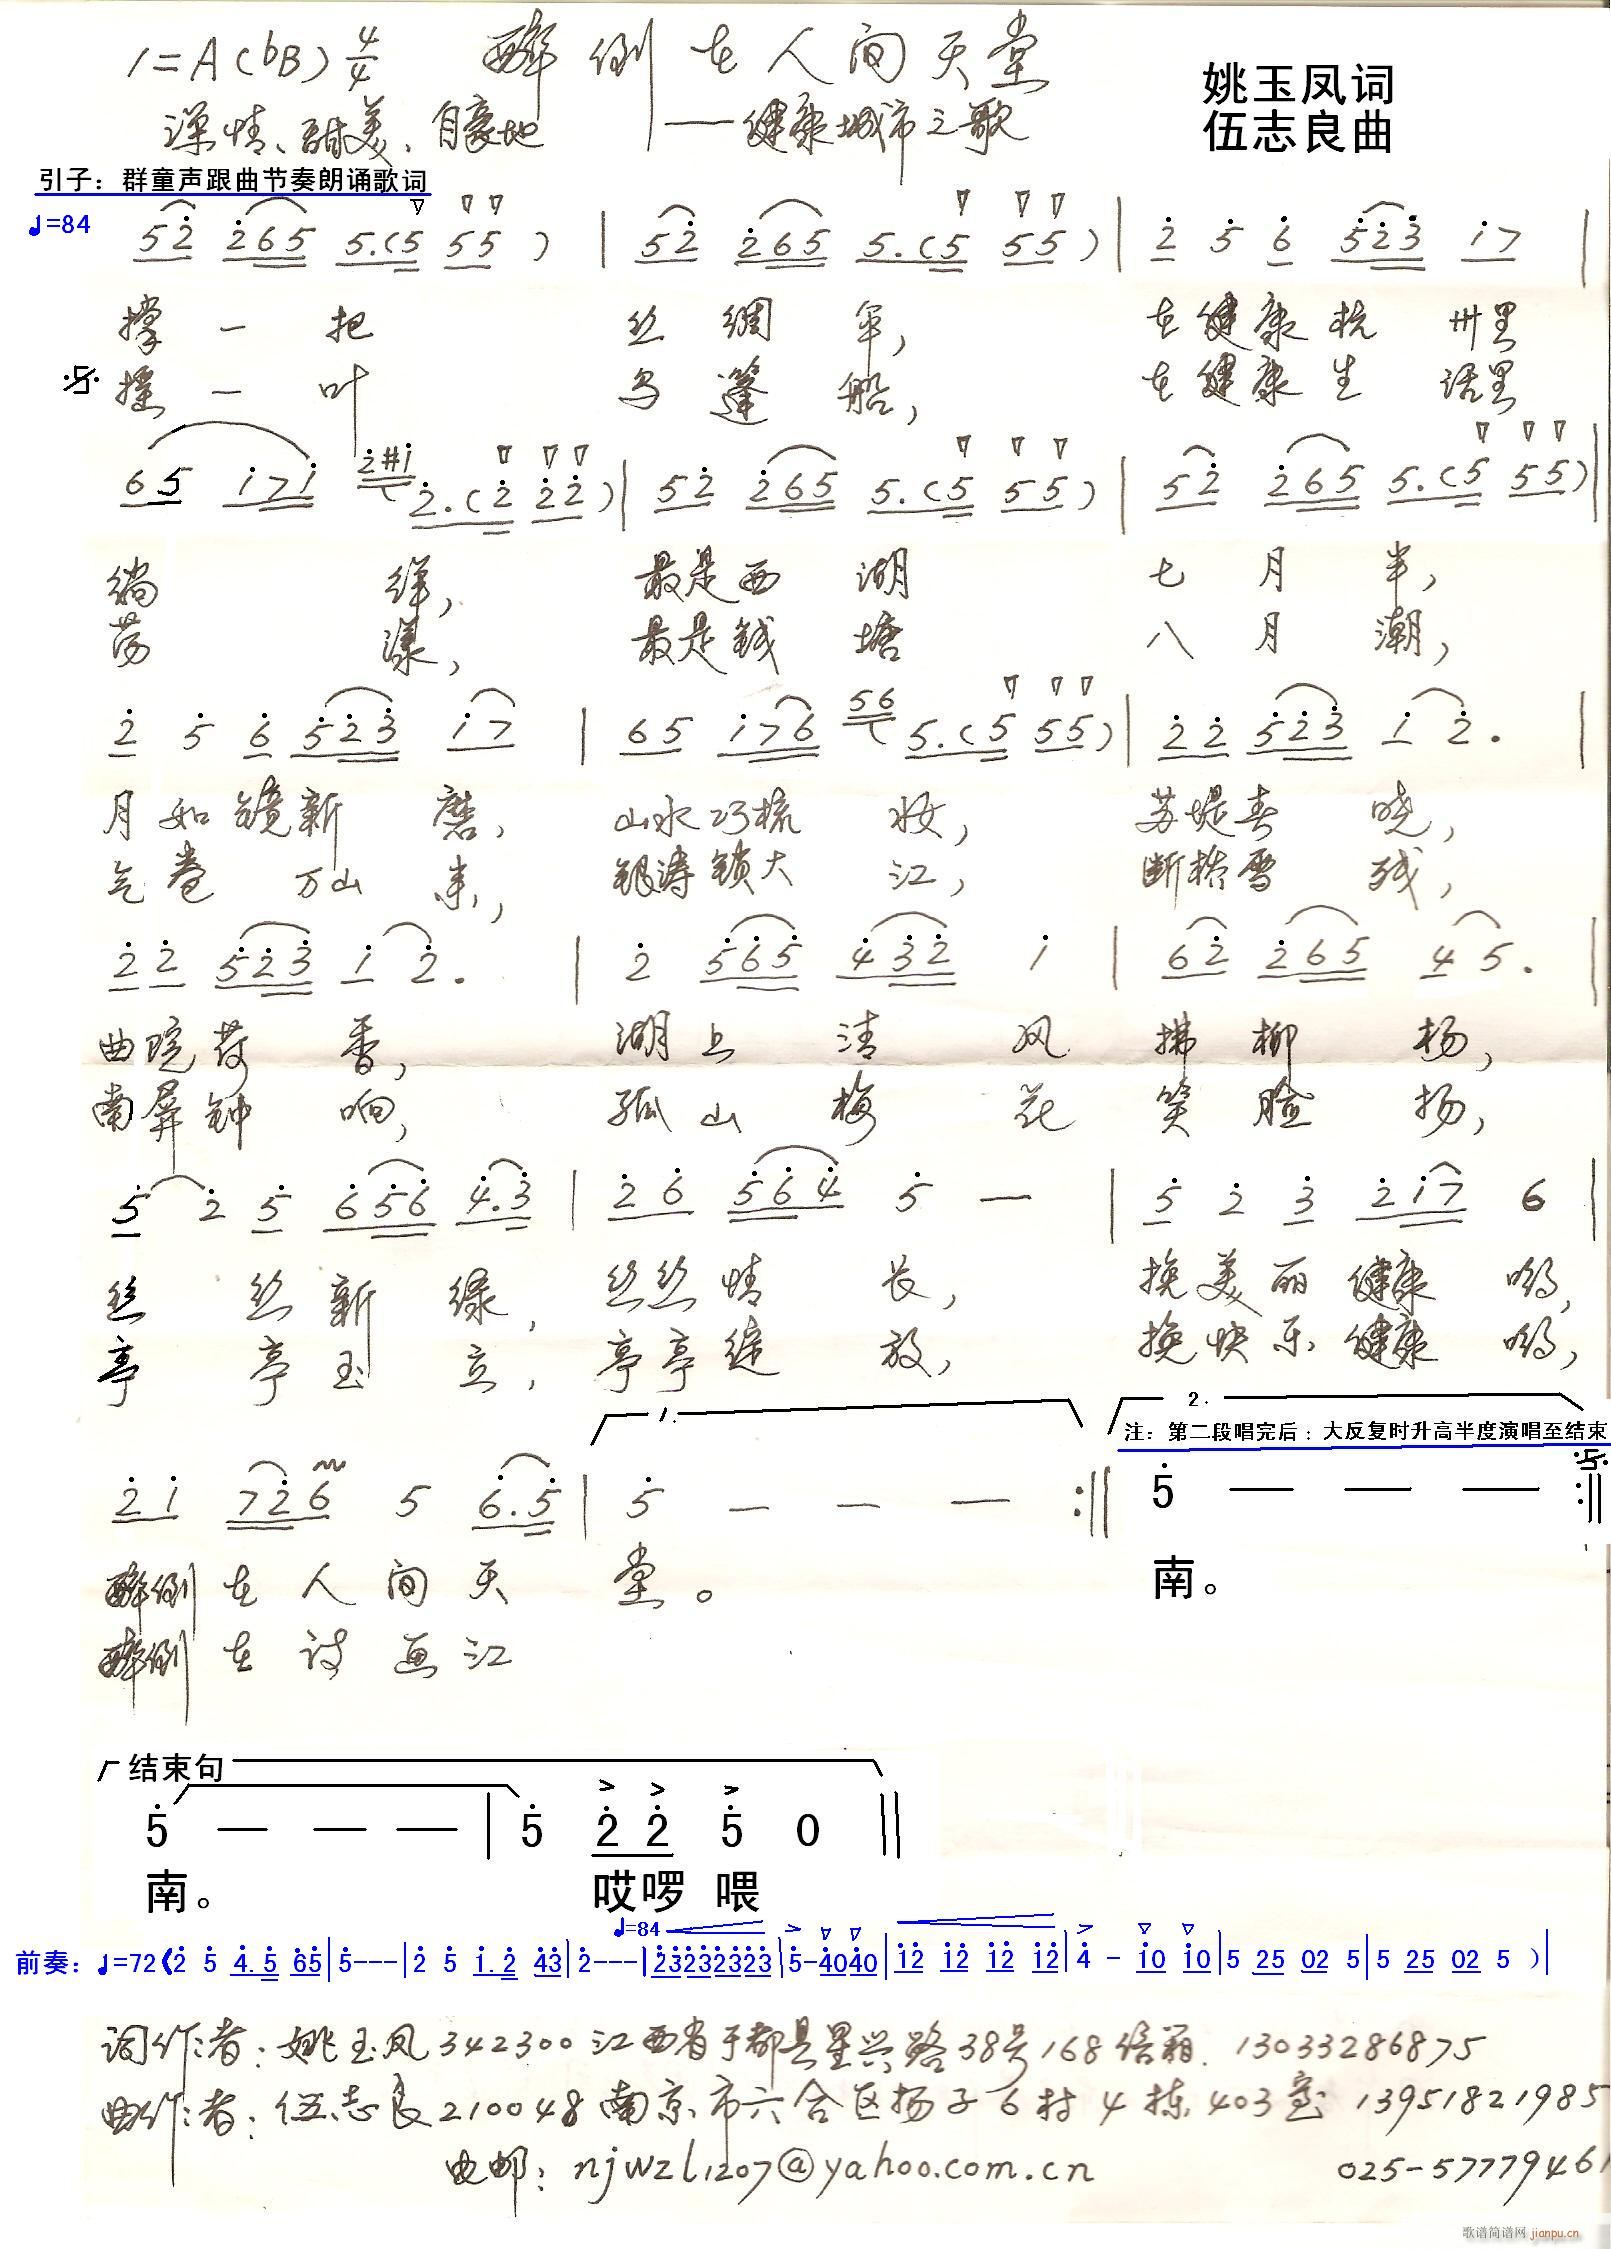 1=A(bB) 4/4 醉倒在人间天堂
姚玉凤词
深情、甜美、自豪地 ——健康城市之歌
伍志良曲
引子：群童声跟曲节奏朗诵歌词
♩=84 5 2 2 6 5 5.(5 5 5 ) | 5 2 2 6 5 5.(5 5 5 ) | 2 5 6 5 2 3 1 7 |
撑 一 把 丝 绸 伞， 在 健 康 杭 州 里
摇 一 叶 乌 篷 船， 在 健 康 生 活 里
6 5 1 7 1 2 #1 2.(2 2 2 ) | 5 2 2 6 5 5.(5 5 5 ) | 5 2 2 6 5 5.(5 5 5 ) |
徜 徉， 最是西 湖 七 月 半，
荡 漾， 最是钱 塘 八 月 潮，
2 5 6 5 2 3 1 7 | 6 5 1 7 6 5 6 5.(5 5 5 ) | 2 2 5 2 3 1 2. |
月 如 镜 新 磨， 山水巧梳 妆， 苏堤春 晓，
气 卷 万 山 来， 银涛锁大 江， 断桥雪 残，
2 2 5 2 3 1 2. | 2 5 6 5 4 3 2 1 | 6 2 2 6 5 4 5. |
曲院荷 香， 湖 上 清 风 拂 柳 杨，
南屏钟 响， 孤 山 梅 花 笑 脸 扬，
5 2 5 6 5 6 4.3 | 2 6 5 6 4 5 — | 5 2 3 2 1 7 6 |
丝 丝 新 绿， 丝丝情 长， 挽 美 丽 健 康 哟，
亭 亭 玉 立， 亭亭绽 放， 挽 快 乐 健 康 哟，
1. 2.
注：第二段唱完后：大反复时升高半度演唱至结束
2 1 7 2 6 5 6.5 | 5 — — — :‖ 5 — — — :‖
醉倒 在 人 间 天 堂。 南。
醉倒 在 诗 画 江
结束句
5 — — — | 5 2 2 5 0 ‖
南。 哎啰 喂
♩=84
前奏：♩=72《2 5 4.5 65|5---|2 5 1.2 43|2---|23232323|5-4040|12 12 12 12|4 - 10 10|5 25 02 5|5 25 02 5 ）|
词作者：姚玉凤342300江西省于都县星兴路38号168信箱. 13033286875
曲作者：伍志良210048南京市六合区扬子6村4栋403室 13951821985
电邮：njwzl1207@yahoo.com.cn 025-57779461
歌谱简谱网 jianpu.cn